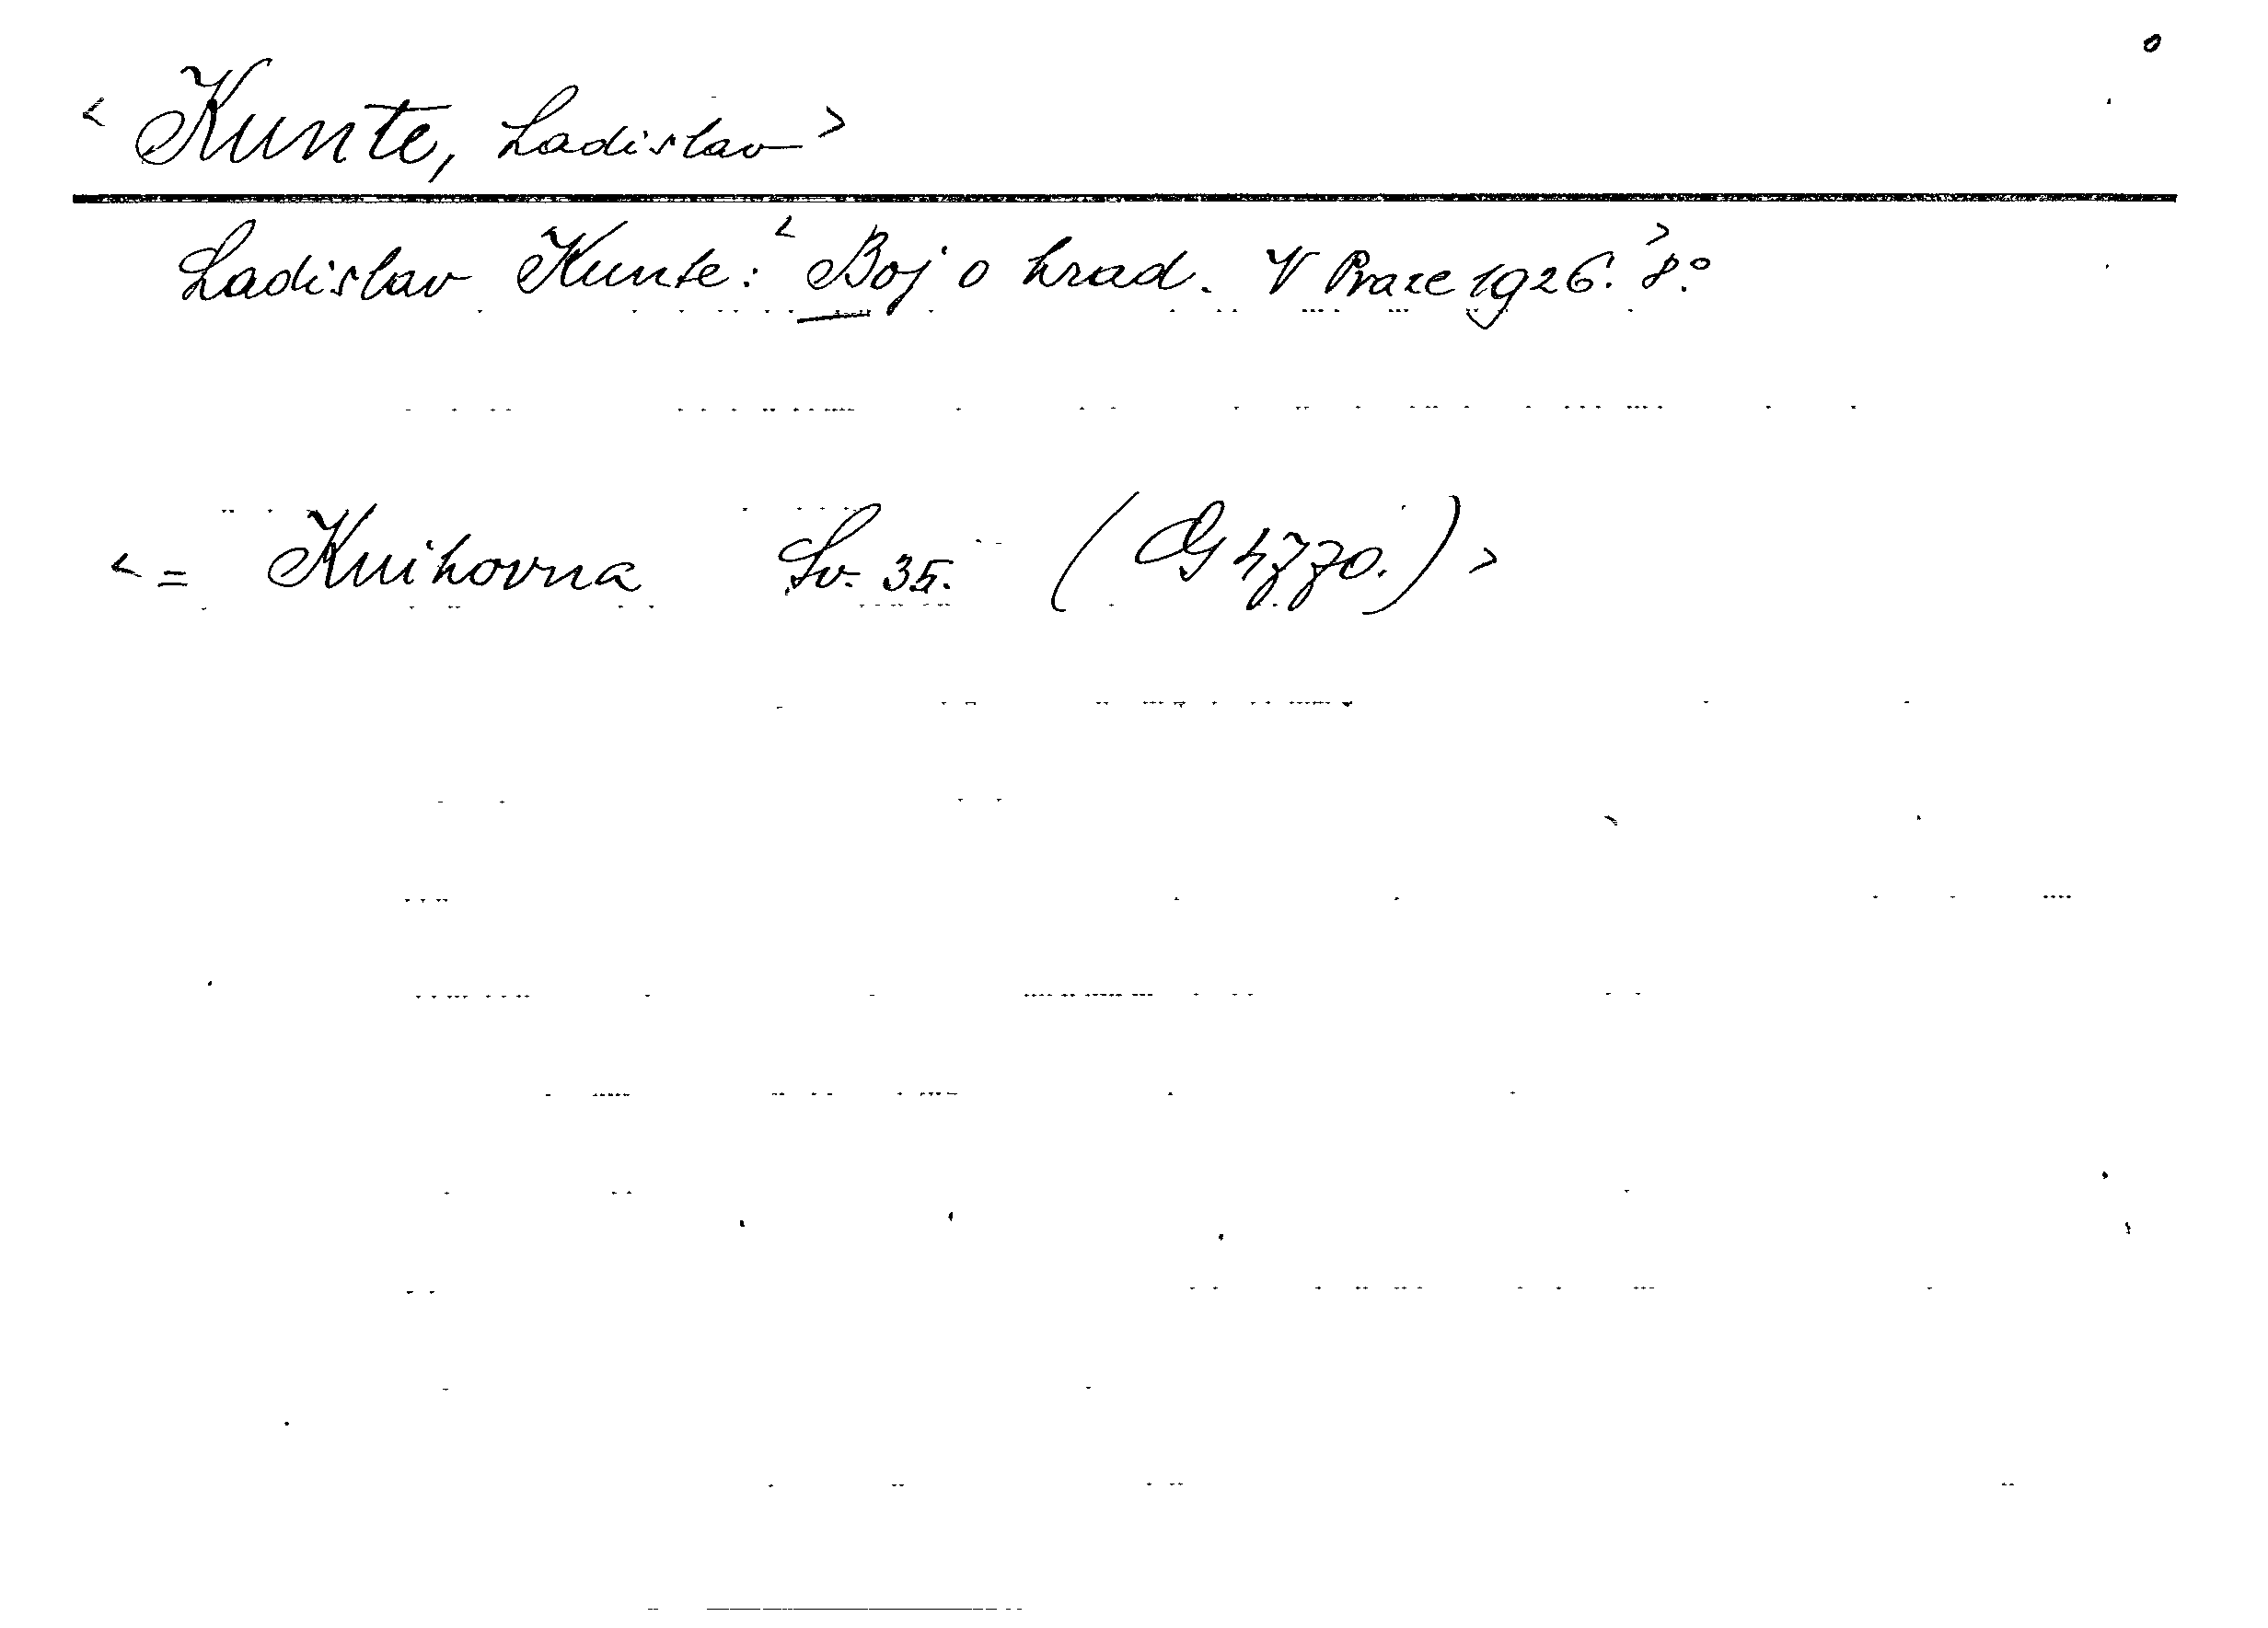 < Kunte, Ladislav >
Ladislav Kunte: < Boj o hrad. V Praze 1926. > 8°
< = Knihovna Sv. 35. (G 4770.) >